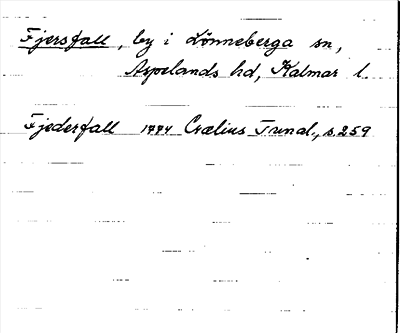 Fjersfall, by i Lönneberga sn,
Aspelands hd, Kalmar l.
Fjederfall 1774 Crælius Tunal., s 259